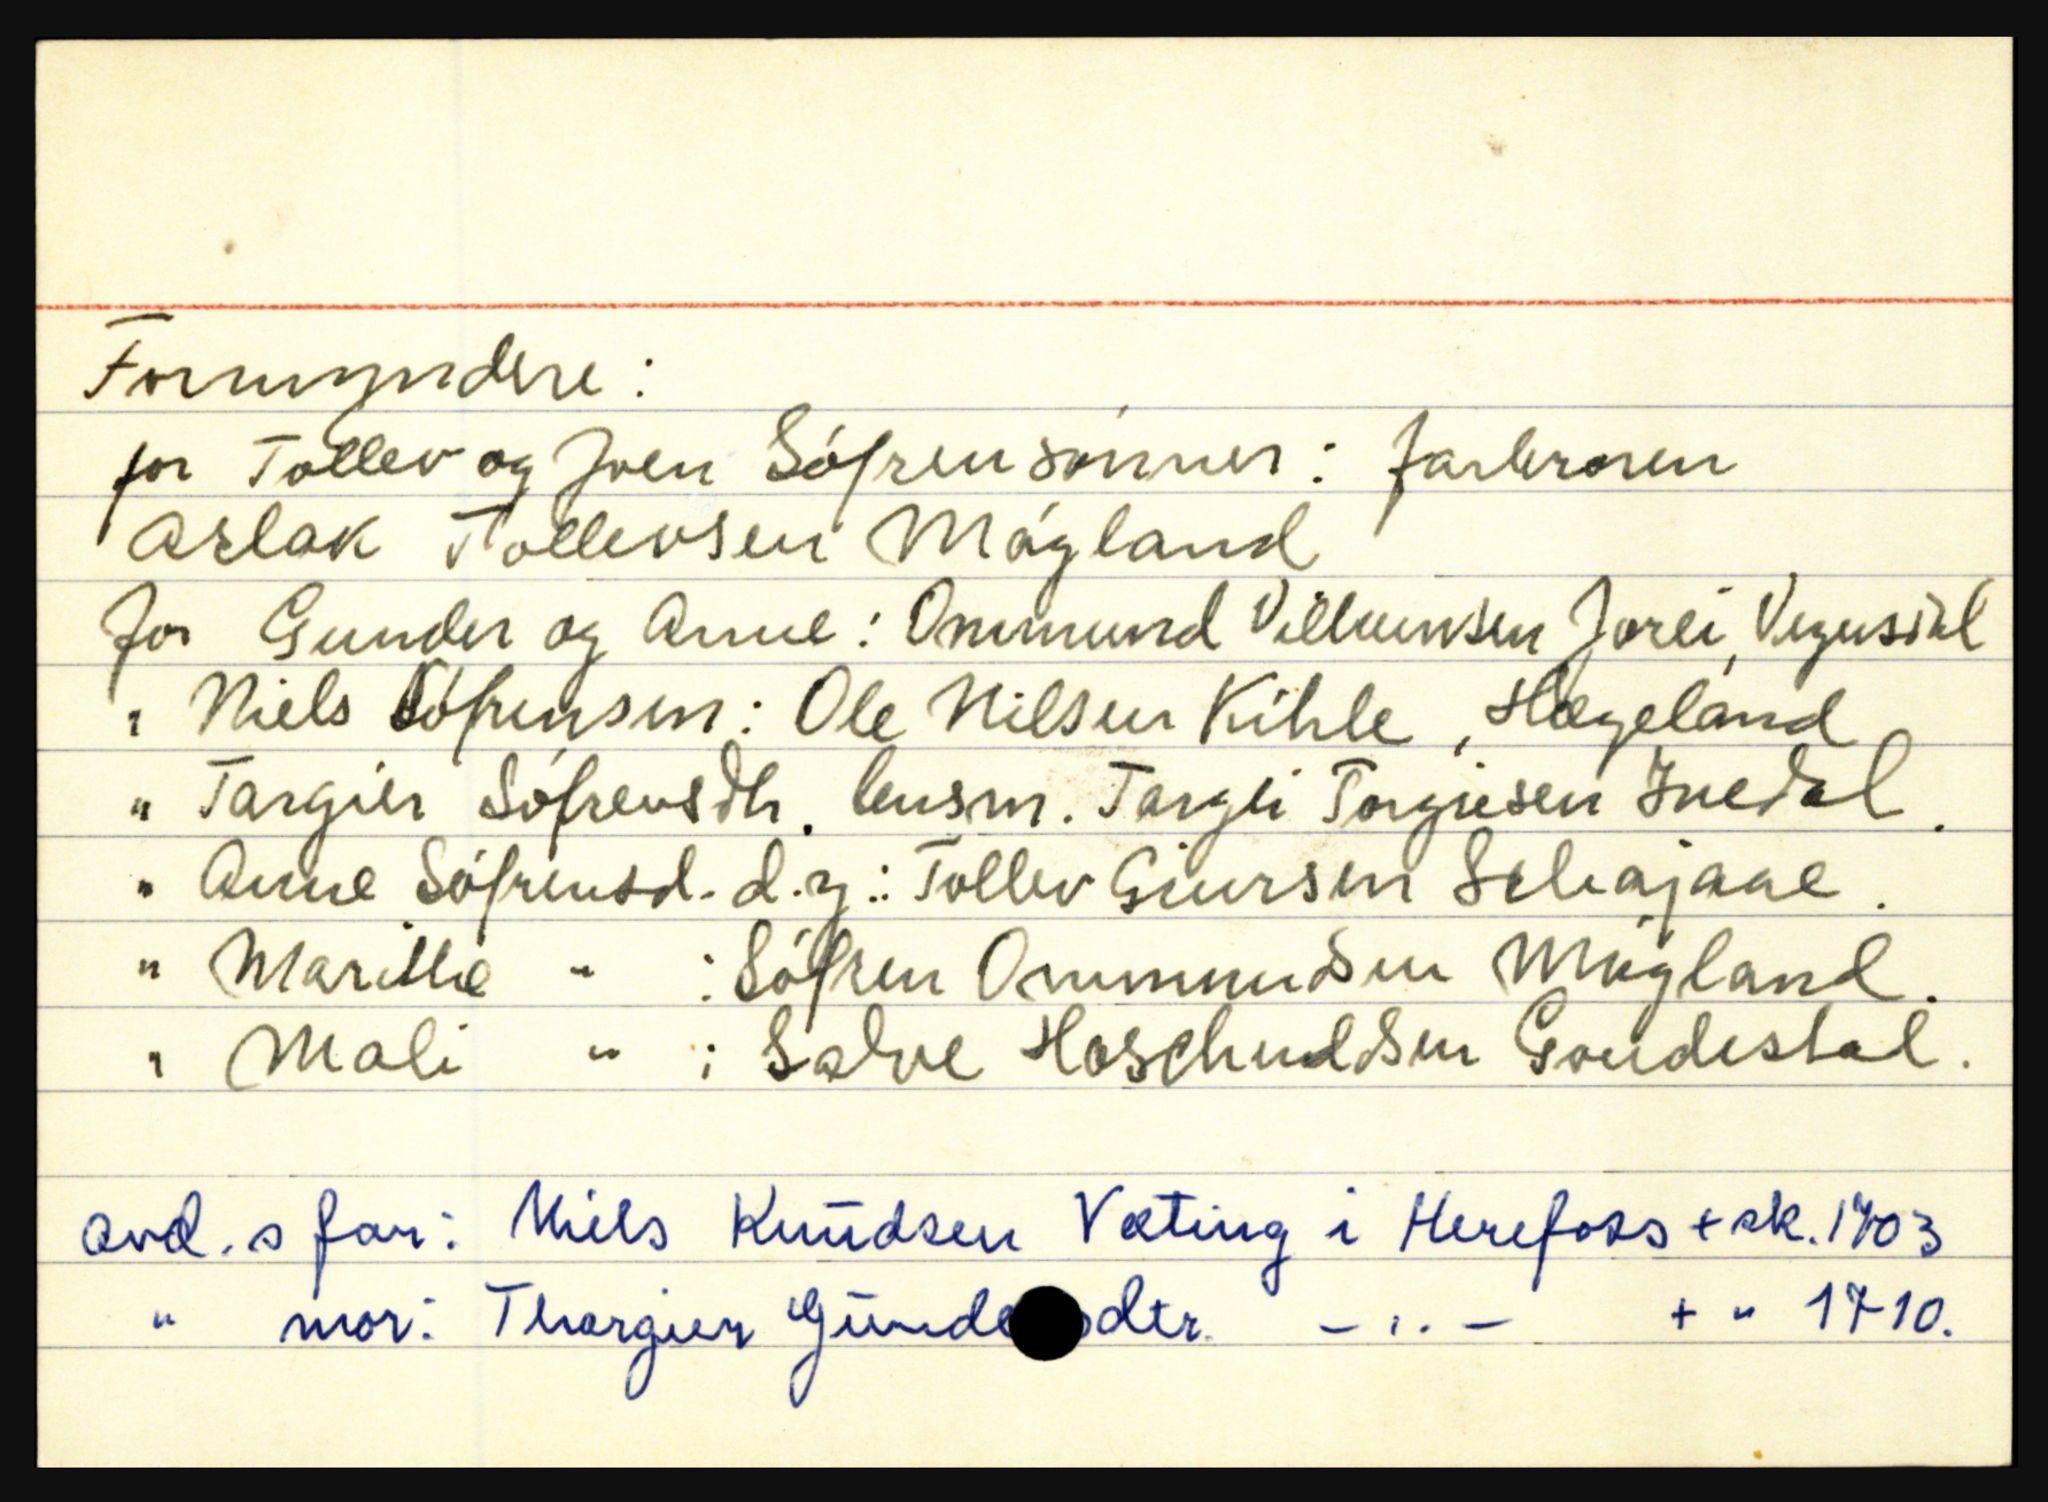 Formyndere:
for Tollev og Joen Sófrensønner: farbroren
Aslak Tollevsen Mógland
for Gunder og Anne: Ommund Villumsen Jorei, Vegusdal
" Niels Sófrensen: Ole Nilsen Kihle, Hægeland
" Targier Sófrensdtr. lensm. Targei Torgiesen Ivedal.
" Anne Sófrensd. d.y.: Tollev Giursen
" Marithe " : Sófren Ommundsen Mógland.
" Mali " : Salve
avd. s far: Niels Knudsen Væting i Herefoss + sk. 1703
" mor: Thorgier Gunde sdtr. - " - + " 1710.